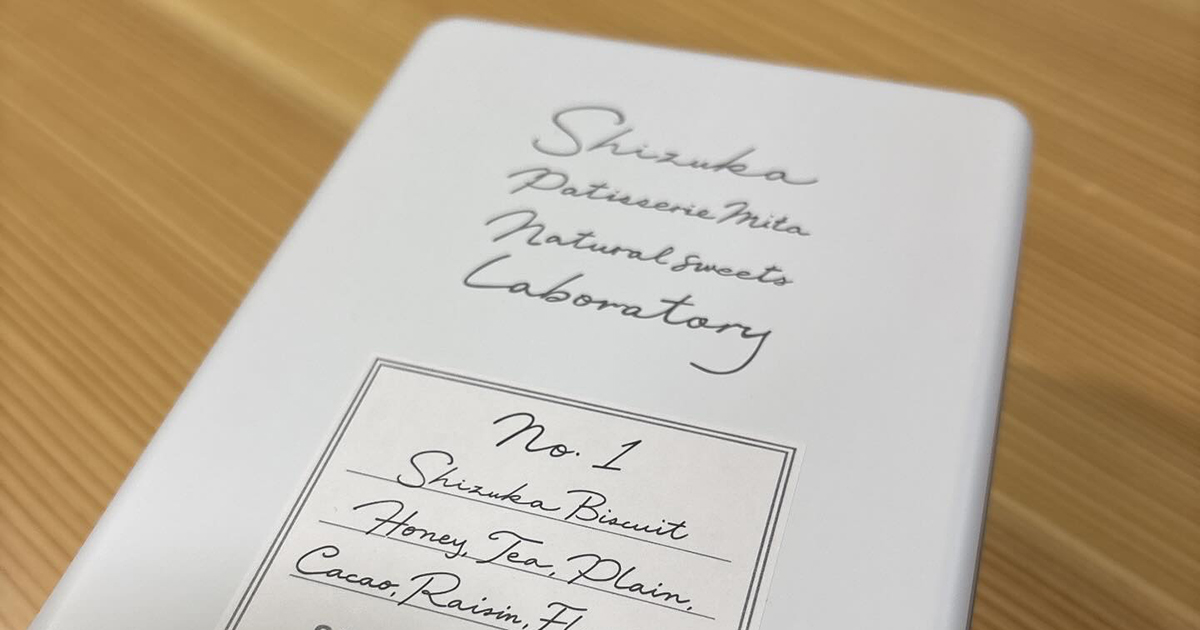 Shizuka
Patisserie Mita
Natural sweets
Laboratory
No. 1
Shizuka Biscuit
Honey, Tea, Plain,
Cacao, Raisin,